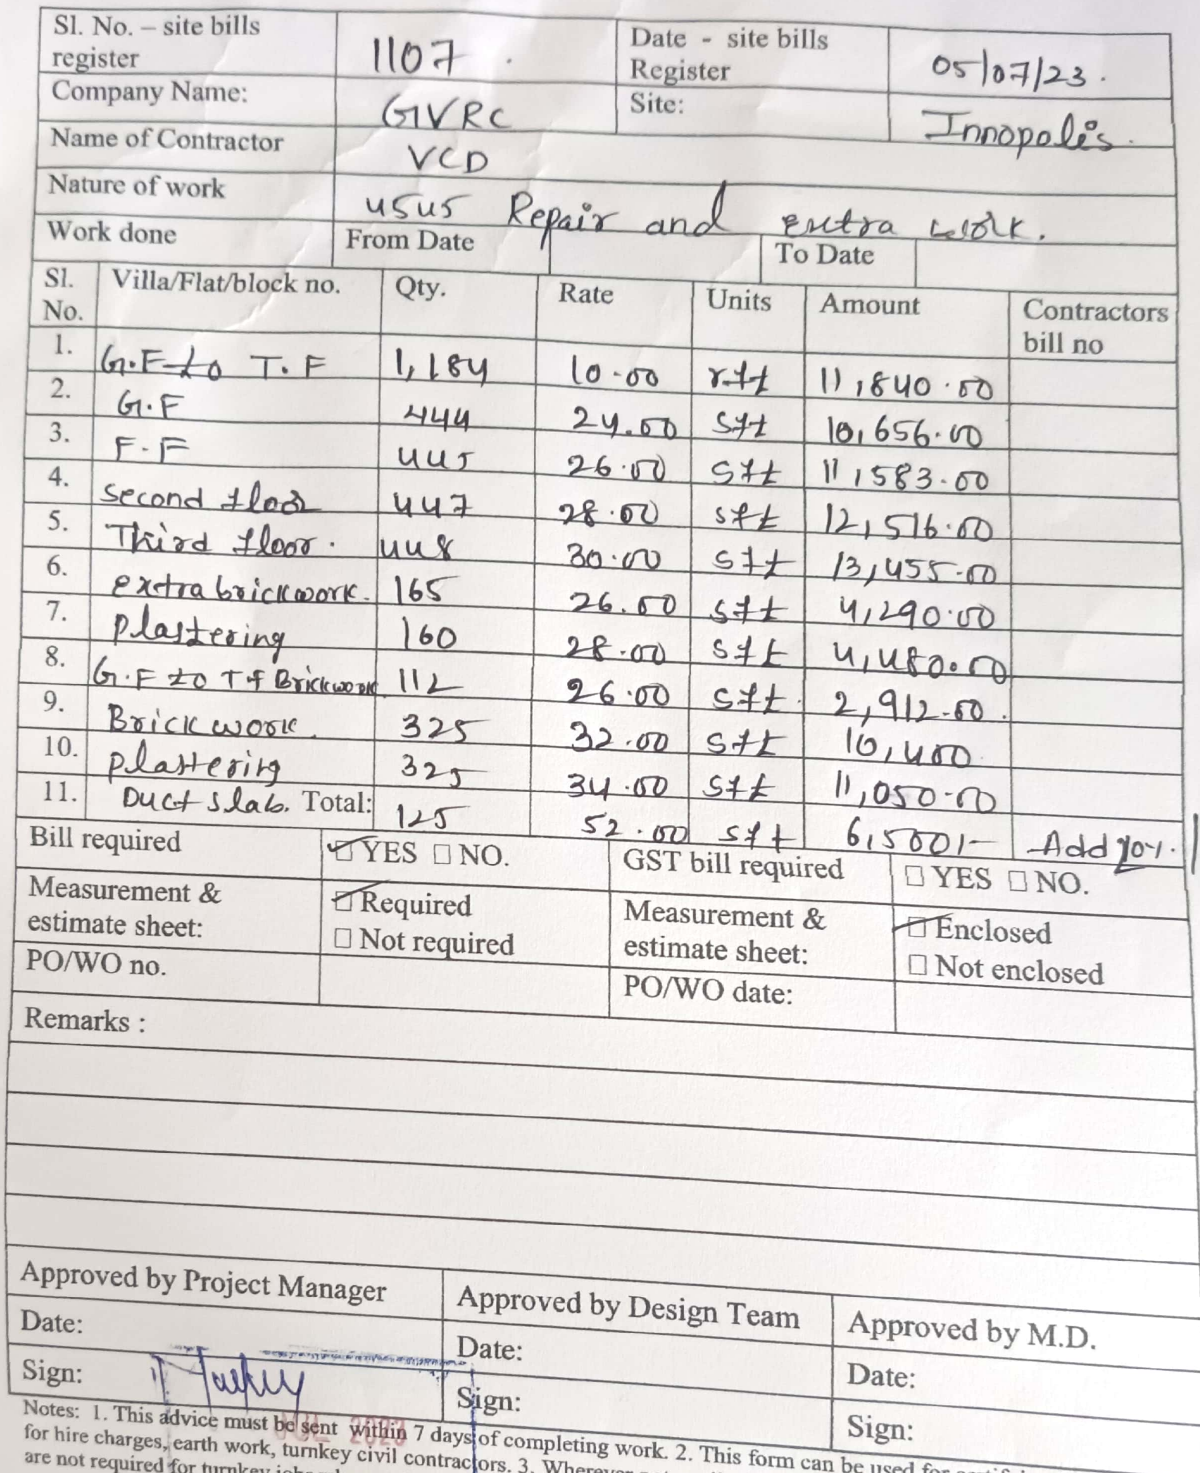 Sl. No. – site bills register 1107. Date - site bills Register 05/07/23.
Company Name: GVRC Site: Innopolis.
Name of Contractor VCD
Nature of work 4545 Repair and extra work.
Work done From Date To Date
Sl. No. Villa/Flat/block no. Qty. Rate Units Amount Contractors bill no
1. G.F to T.F 1,184 10.00 rft 11,840.00
2. G.F 444 24.00 sft 10,656.00
3. F.F 445 26.00 sft 11,583.00
4. second floor 447 28.00 sft 12,516.00
5. Third floor. 448 30.00 sft 13,455.00
6. extra brickwork. 165 26.00 sft 4,290.00
7. plastering 160 28.00 sft 4,480.00
8. G.F to T f Brickwork 112 26.00 sft. 2,912.00.
9. Brick work. 325 32.00 sft 10,400
10. plastering 325 34.00 sft 11,050.00
11. Duct slab. Total: 125 52.00 sft 6,500/- Add 10%.
Bill required ☑ YES ☐ NO. GST bill required ☐ YES ☐ NO.
Measurement & estimate sheet: ☑ Required ☐ Not required Measurement & estimate sheet: ☑ Enclosed ☐ Not enclosed
PO/WO no. PO/WO date:
Remarks :
Approved by Project Manager Approved by Design Team Approved by M.D.
Date: Date: Date:
Sign: Sign: Sign:
2023
Notes: 1. This advice must be sent within 7 days of completing work. 2. This form can be used for
for hire charges, earth work, turnkey civil contractors. 3. Wherever
are not required for turnkey